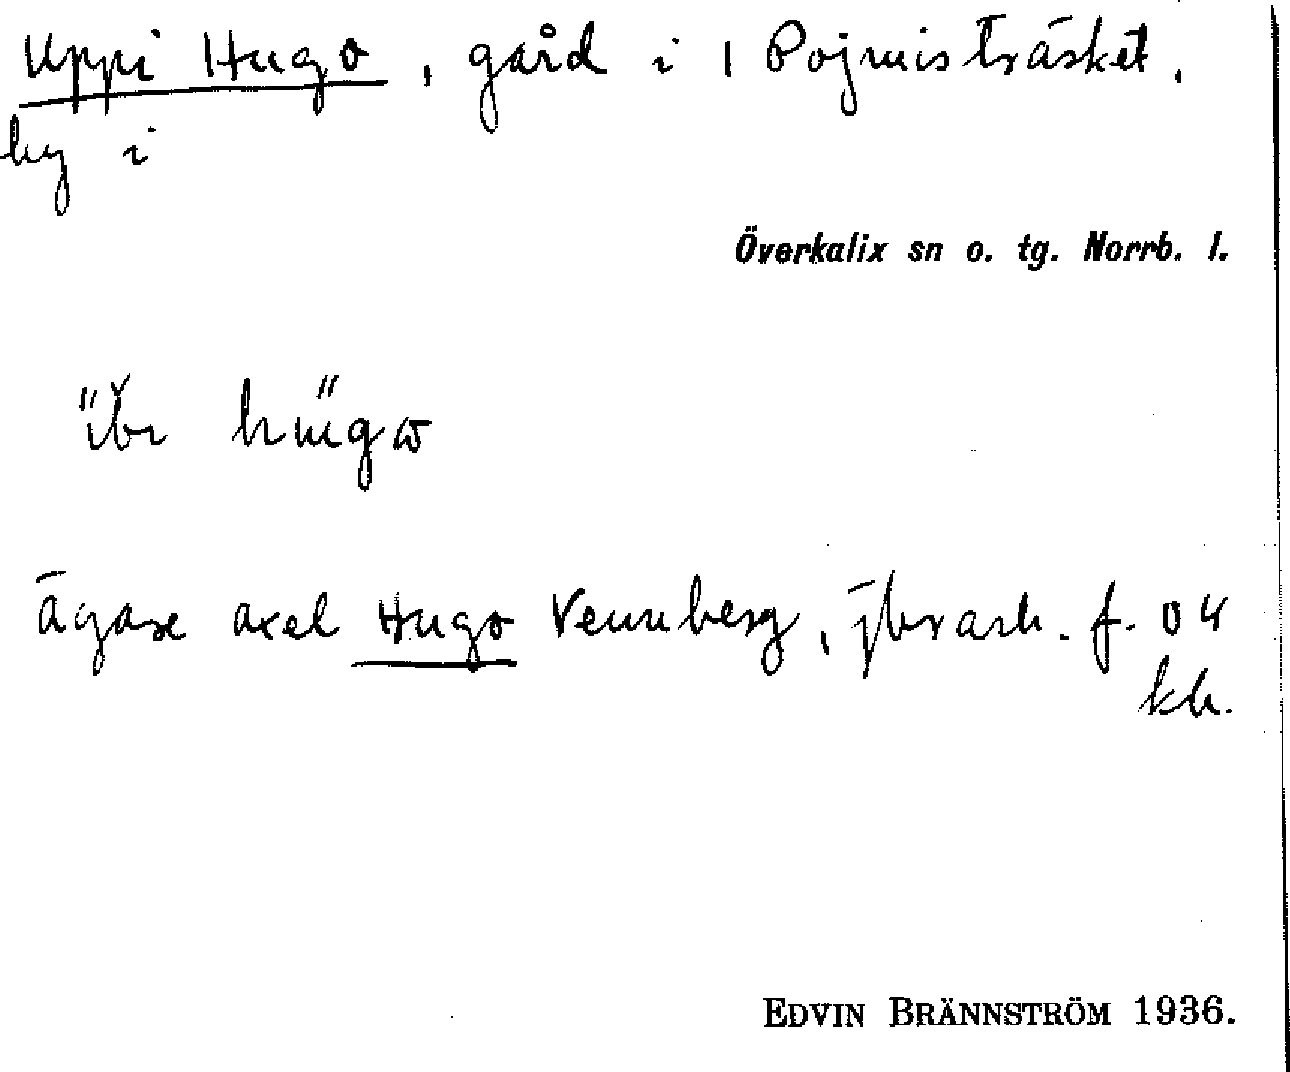 Uppi Hugo, gård i 1 Pojmisträsket,
by i
Överkalix sn o. tg. Norrb. l.
ägare Axel Hugo Vennberg, jbrarb. f. 04
kh.
EDVIN BRÄNNSTRÖM 1936.